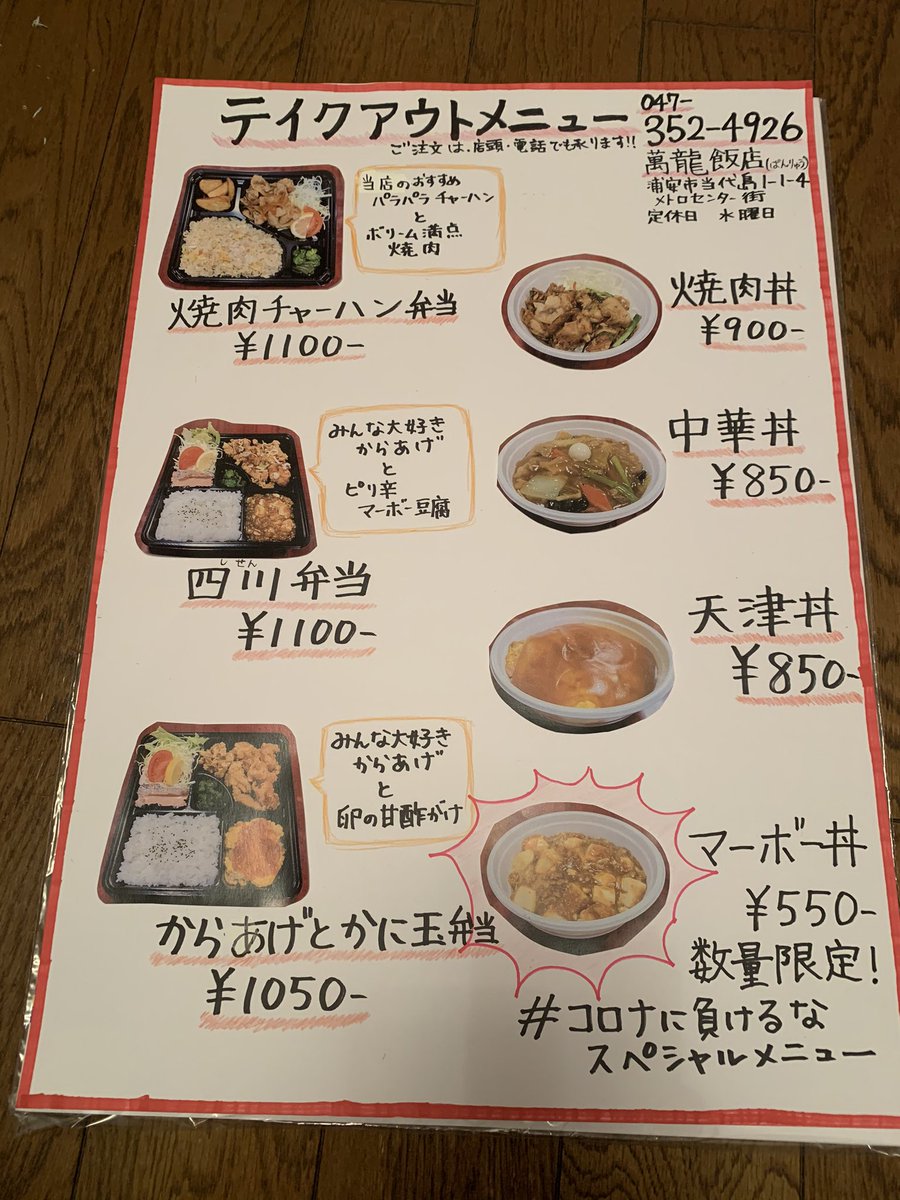 テイクアウトメニュー
ご注文は、店頭・電話でも承ります!!
047-
352-4926
萬龍飯店(ばんりゅう)
浦安市当代島1-1-4
メトロセンター街
定休日 水曜日
当店のおすすめ
パラパラチャーハン
と
ボリーム満点
焼肉
焼肉チャーハン弁当
¥1100-
焼肉丼
¥900-
みんな大好き
からあげ
と
ピリ辛
マーボー豆腐
四川弁当
しせん
¥1100-
中華丼
¥850-
天津丼
¥850-
みんな大好き
からあげ
と
卵の甘酢がけ
からあげとかに玉弁当
¥1050-
マーボー丼
¥550-
数量限定!
#コロナに負けるな
スペシャルメニュー